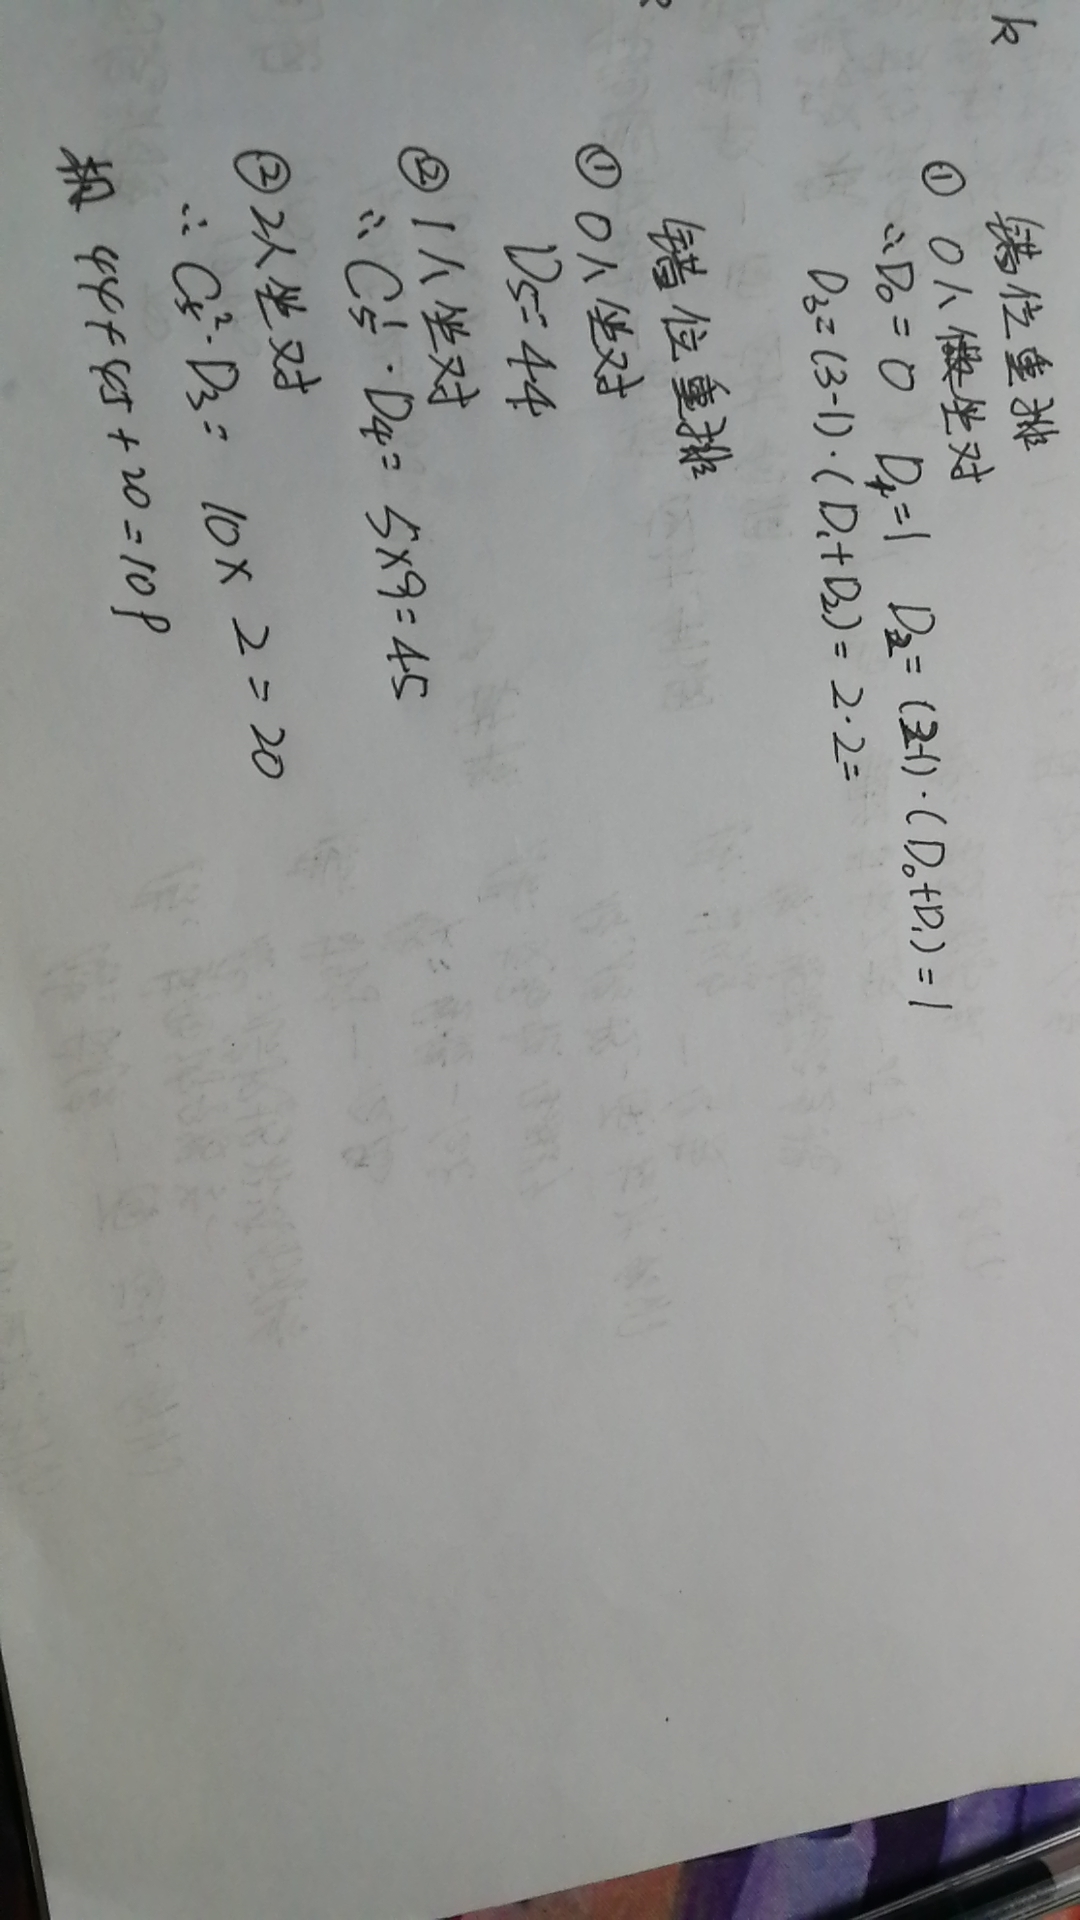 k
错位重排
① 0人坐对
∴D₀=0 D₁=1 D₂=(2-1)·(D₀+D₁)=1
D₃=(3-1)·(D₁+D₂)=2·2=
错位重排
① 0人坐对
D₅=44
② 1人坐对
∴C₅¹·D₄=5×9=45
② 2人坐对
∴C₅²·D₃=10×2=20
44+45+20=109